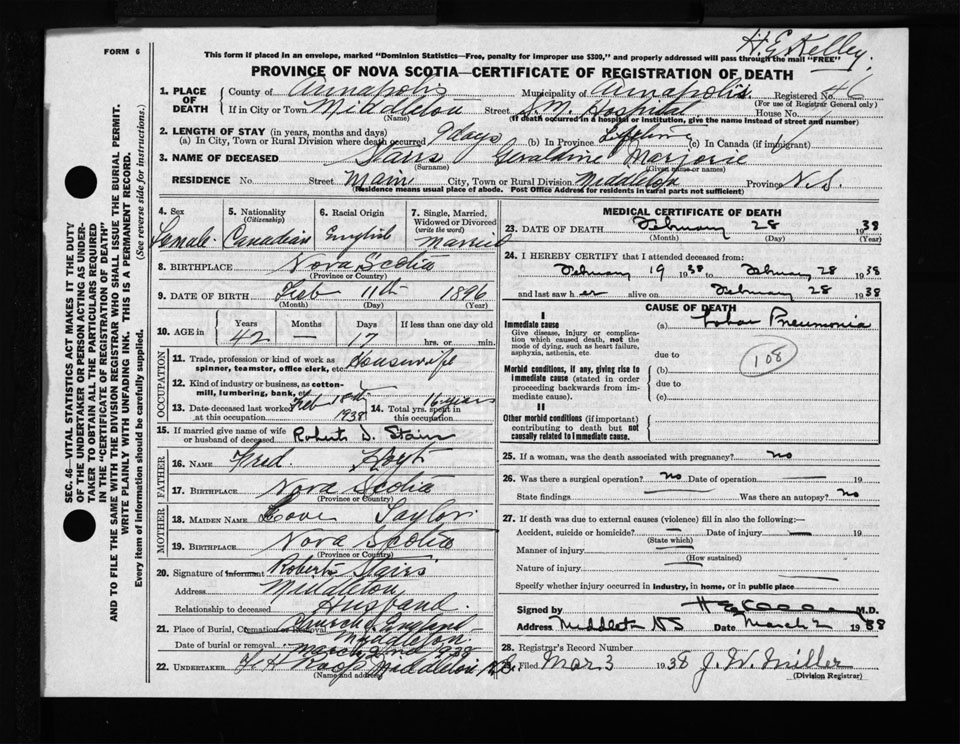 H. E. Kelley
FORM 6
This form if placed in an envelope, marked "Dominion Statistics—Free, penalty for improper use $300," and properly addressed will pass through the mail "FREE"
PROVINCE OF NOVA SCOTIA—CERTIFICATE OF REGISTRATION OF DEATH
1. PLACE OF DEATH County of Annapolis Municipality of Annapolis Registered No. 46
(For use of Registrar General only)
If in City or Town Middleton Street S. M. Hospital House No.
(Name) (If death occurred in a hospital or institution, give the name instead of street and number)
2. LENGTH OF STAY (in years, months and days)
(a) In City, Town or Rural Division where death occurred 9 days (b) In Province Lifetime (c) In Canada (if immigrant)
3. NAME OF DECEASED Stairs Geraldine Marjorie
(Surname) (Given name or names)
RESIDENCE No. Street Main City, Town or Rural Division Middleton Province N.S.
(Residence means usual place of abode. Post Office Address for residents in rural parts not sufficient)
4. Sex Female
5. Nationality (Citizenship) Canadian
6. Racial Origin English
7. Single, Married, Widowed or Divorced (write the word) Married
8. BIRTHPLACE Nova Scotia
(Province or Country)
9. DATE OF BIRTH Feb 11th 1896
(Month) (Day) (Year)
10. AGE in Years Months Days If less than one day old
42 — 17 hrs. or min.
OCCUPATION
11. Trade, profession or kind of work as spinner, teamster, office clerk, etc. Housewife
12. Kind of industry or business, as cotton-mill, lumbering, bank, etc.
13. Date deceased last worked at this occupation Feb 1938 14. Total yrs. spent in this occupation 16 years
15. If married give name of wife or husband of deceased Roberts D. Stairs
FATHER
16. NAME Fred. Hoyt
17. BIRTHPLACE Nova Scotia
(Province or Country)
MOTHER
18. MAIDEN NAME Taylor
19. BIRTHPLACE Nova Scotia
(Province or Country)
20. Signature of informant Roberts Stairs
Address Middleton
Relationship to deceased Husband.
21. Place of Burial, Cremation or Removal Church of England Middleton
Date of burial or removal March 2nd 1938
22. UNDERTAKER F H Roop Middleton N.S.
(Name and address)
MEDICAL CERTIFICATE OF DEATH
23. DATE OF DEATH February 28 1938
(Month) (Day) (Year)
24. I HEREBY CERTIFY that I attended deceased from:
February 19 1938 to February 28 1938
and last saw her alive on February 28 1938
CAUSE OF DEATH
I
Immediate cause (a) Lobar Pneumonia
Give disease, injury or complication which caused death, not the mode of dying, such as heart failure, asphyxia, asthenia, etc.
due to
108
Morbid conditions, if any, giving rise to immediate cause (stated in order proceeding backwards from immediate cause).
(b)
due to
(c)
II
Other morbid conditions (if important) contributing to death but not causally related to immediate cause.
25. If a woman, was the death associated with pregnancy? no
26. Was there a surgical operation? No Date of operation — 19
State findings — Was there an autopsy? No
27. If death was due to external causes (violence) fill in also the following:—
Accident, suicide or homicide? — Date of injury — 19
(State which)
Manner of injury —
(How sustained)
Nature of injury —
Specify whether injury occurred in industry, in home, or in public place
Signed by M.D.
Address Middleton NS Date March 2 1938
28. Registrar's Record Number
29. Filed Mar 3 1938 J. W. Miller
(Division Registrar)
SEC. 46—VITAL STATISTICS ACT MAKES IT THE DUTY
OF THE UNDERTAKER OR PERSON ACTING AS UNDER-
TAKER TO OBTAIN ALL THE PARTICULARS REQUIRED
IN THE "CERTIFICATE OF REGISTRATION OF DEATH"
AND TO FILE THE SAME WITH THE DIVISION REGISTRAR WHO SHALL ISSUE THE BURIAL PERMIT.
WRITE PLAINLY WITH UNFADING INK. THIS IS A PERMANENT RECORD.
Every item of information should be carefully supplied. (See reverse side for instructions.)